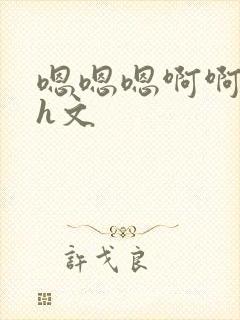 嗯嗯嗯啊啊
h文
許戈良